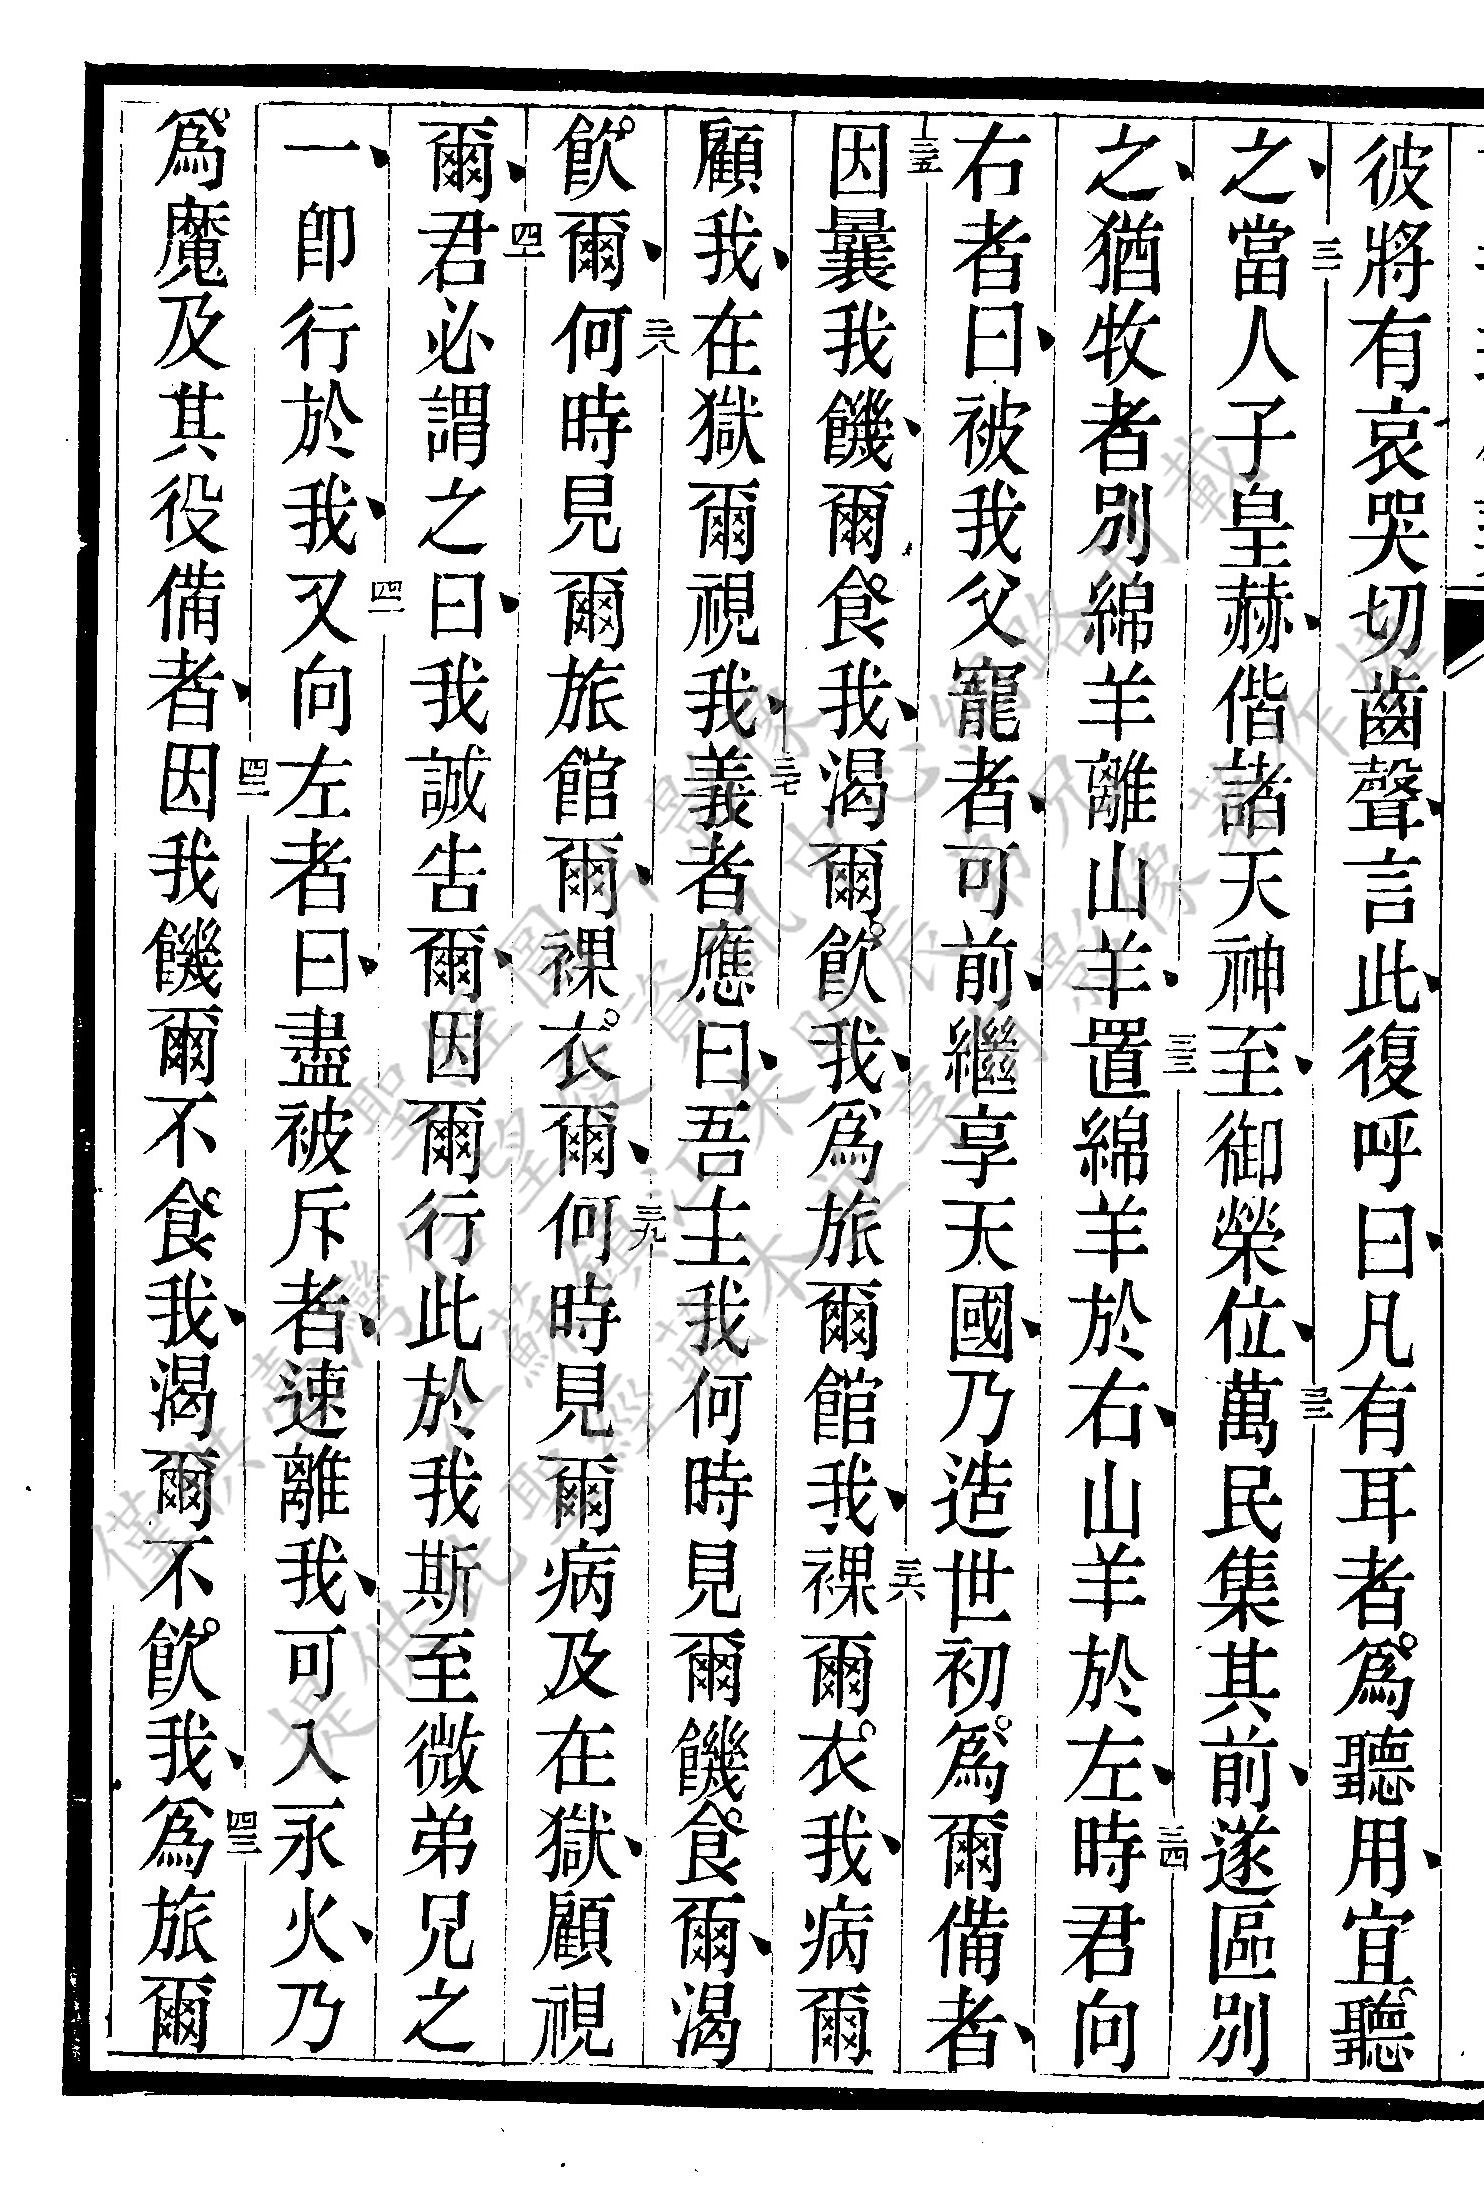 彼將有哀哭切齒聲、言此、復呼曰、凡有耳者、爲聽用、宜聽
之、三一當人子皇赫、偕諸天神至、御榮位、三二萬民集其前、遂區別
之、猶牧者別綿羊離山羊、三三置綿羊於右、山羊於左、三四時君向
右者曰、被我父寵者、可前、繼享天國、乃造世初爲爾備者、
三五因曩我饑、爾食我、渴爾飲我、爲旅爾館我、三六裸爾衣我、病爾
顧我、在獄爾視我、三七義者應曰、吾主我何時見爾饑食爾、渴
飲爾、三八何時見爾旅館爾、裸衣爾、三九何時見爾病及在獄、顧視
爾、四十君必謂之曰、我誠吿爾、因爾行此於我斯至微弟兄之
一、卽行於我、四一又向左者曰、盡被斥者、速離我、可入永火、乃
爲魔及其役備者、四二因我饑爾不食我、渴爾不飲我、四三爲旅爾